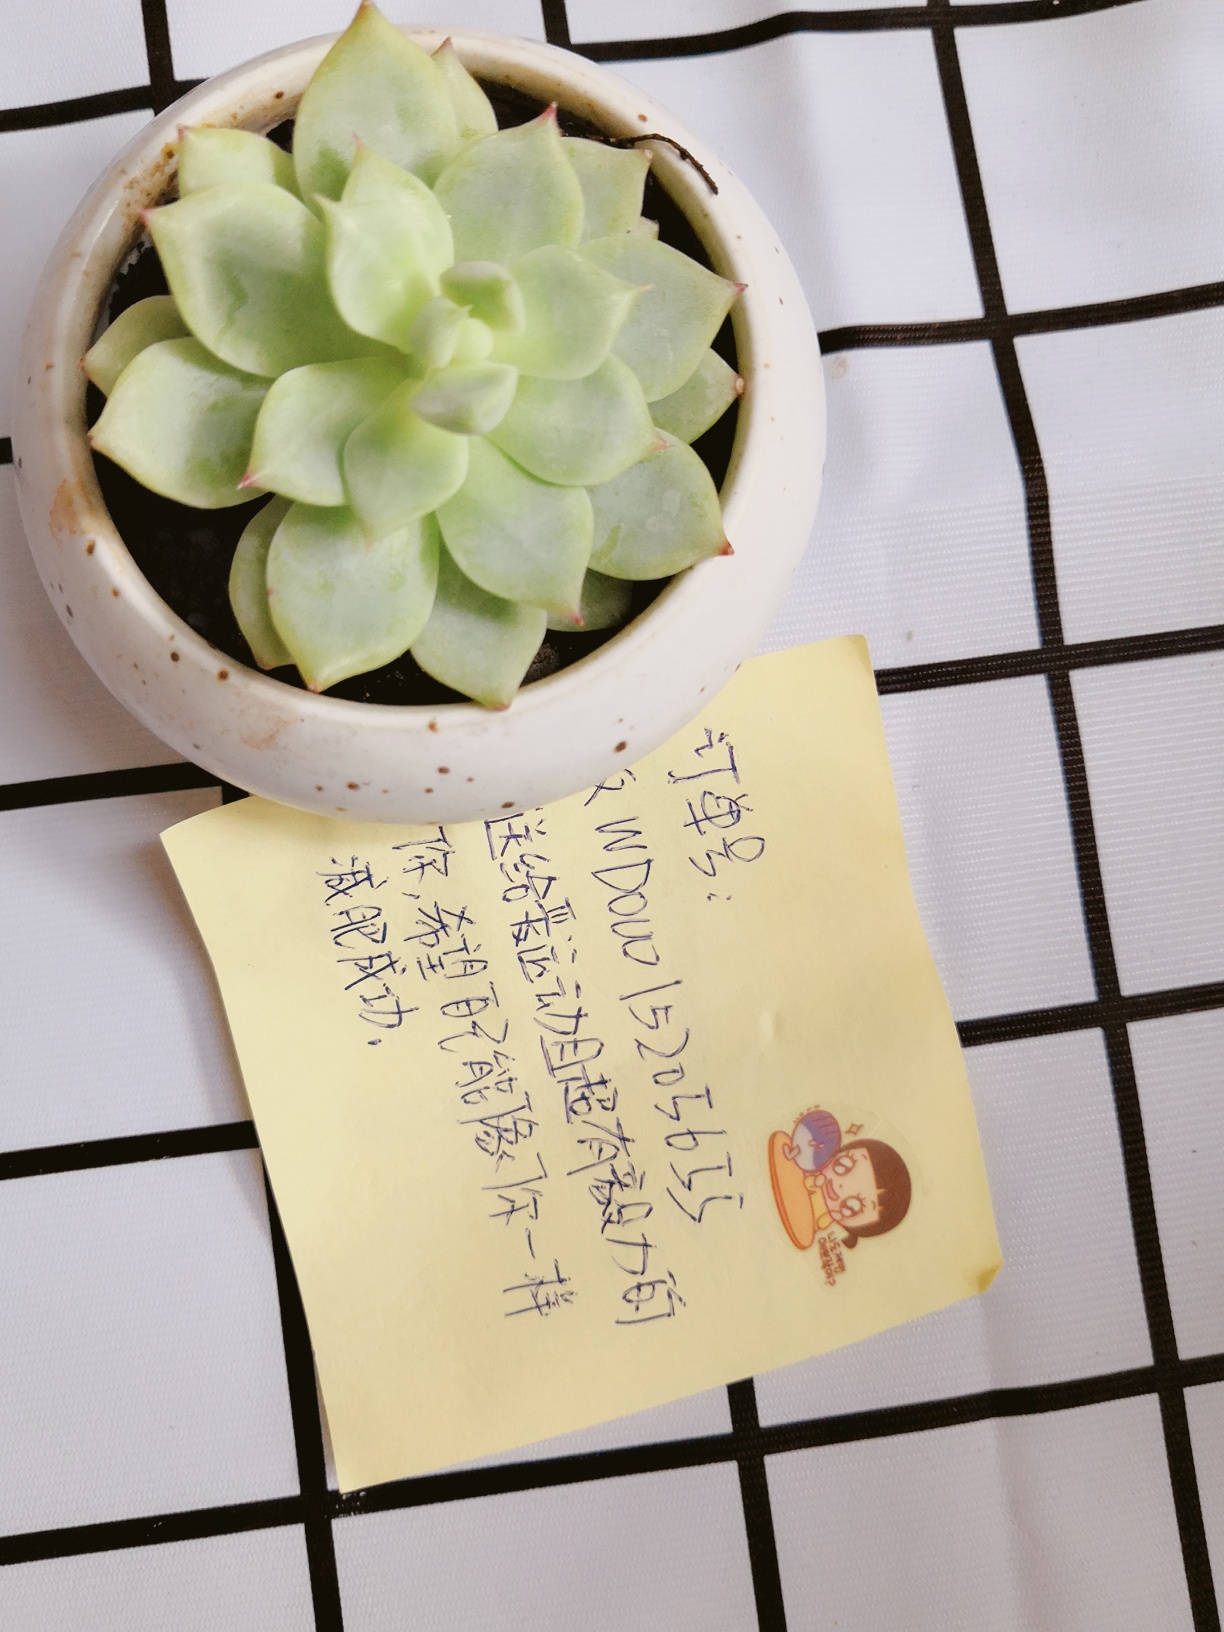 订单号：
WDOUO152035635
送给最运动且超有毅力的
你，希望我能像你一样
减肥成功.